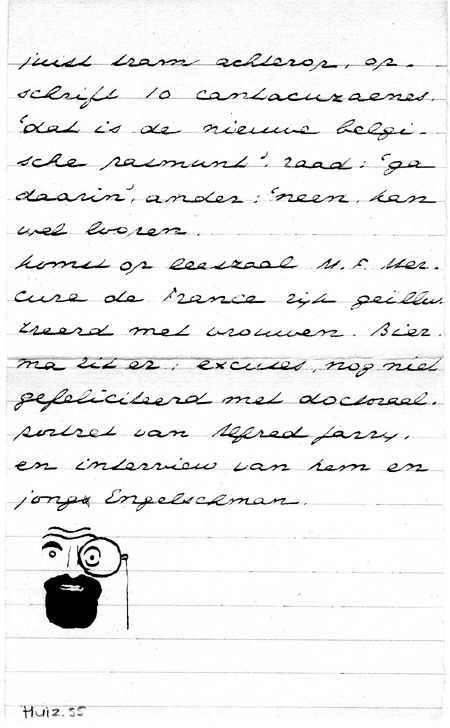 juist tram achterop, op-
schrift 10 cantacuzaenes.
'dat is de nieuwe belgi-
sche pasmunt'. raad: 'ga
daarin', ander: 'neen, kan
wel looren.
komst op leeszaal M. F. Mer-
cure de France rijk geïllu-
streerd met vrouwen. Bier-
ma zit er: excuses, nog niet
gefeliciteerd met doctoraal.
portret van Alfred Jarry.
en interview van hem en
jonge Engelschman.
Huiz. 55